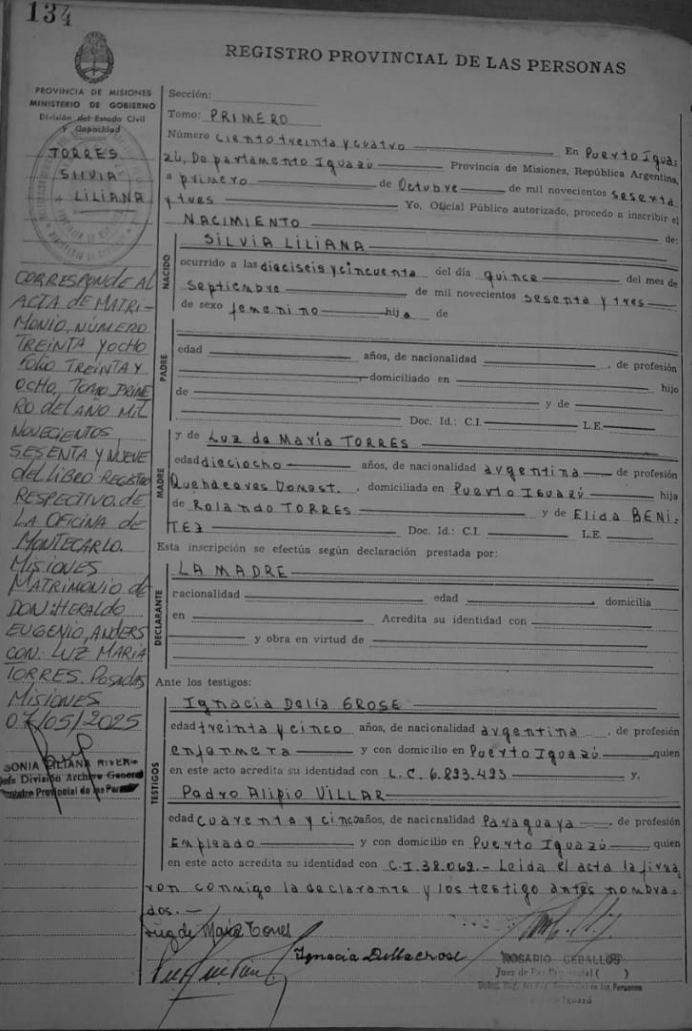 134
REGISTRO PROVINCIAL DE LAS PERSONAS
PROVINCIA DE MISIONES
MINISTERIO DE GOBIERNO
División del Estado Civil
y Capacidad
TORRES
SILVIA
LILIANA
CORRESPONDE AL
ACTA DE MATRI-
MONIO, NÚMERO
TREINTA Y OCHO
FOLIO TREINTA Y
OCHO, TOMO PRIME
RO DEL AÑO MIL
NOVECIENTOS
SESENTA Y NUEVE
DEL LIBRO REGISTRO
RESPECTIVO. DE
LA OFICINA DE
MONTECARLO.
MISIONES
MATRIMONIO de
DON: HERALDO
EUGENIO, ANDERS
CON: LUZ MARIA
TORRES. POSADAS
MISIONES
07/05/2025
SONIA LILIANA RIVERO
Jefe División Archivo General
Registro Provincial de las Personas
Sección:
Tomo: PRIMERO
Número ciento treinta y cuatro En Puerto Igua-
zú, Departamento Iguazú Provincia de Misiones, República Argentina,
a primero de Octubre de mil novecientos sesenta
y tres Yo, Oficial Público autorizado, procedo a inscribir el
NACIMIENTO de:
NACIDO
SILVIA LILIANA
ocurrido a las dieciseis y cincuenta del día quince del mes de
septiembre de mil novecientos sesenta y tres
de sexo femenino hija de
PADRE
edad años, de nacionalidad , de profesión
domiciliado en hijo
de y de
Doc. Id.: C.I. L.E.
MADRE
y de Luz de María TORRES
edad dieciocho años, de nacionalidad argentina de profesión
Quehaceres Domest. , domiciliada en Puerto Iguazú hija
de Rolando TORRES y de Elida BENI-
TEZ Doc. Id.: C.I. L.E.
Esta inscripción se efectúa según declaración prestada por:
DECLARANTE
LA MADRE
nacionalidad edad , domicilia
en Acredita su identidad con
y obra en virtud de
Ante los testigos:
TESTIGOS
Ignacia Delia GROSE
edad treinta y cinco años, de nacionalidad argentina , de profesión
enfermera y con domicilio en Puerto Iguazú quien
en este acto acredita su identidad con L.C. 6.893.493 y,
Pedro Alipio VILLAR
edad cuarenta y cinco años, de nacionalidad Paraguaya de profesión
Empleado y con domicilio en Puerto Iguazú quien
en este acto acredita su identidad con C.I. 38.062.- Leida el acta la firma
ron conmigo la declarante y los testigo antes nombra-
dos.-
Luz de María Torres
Ignacia Dellacrose
ROSARIO CEBALLOS
Juez de Paz
Iguazú